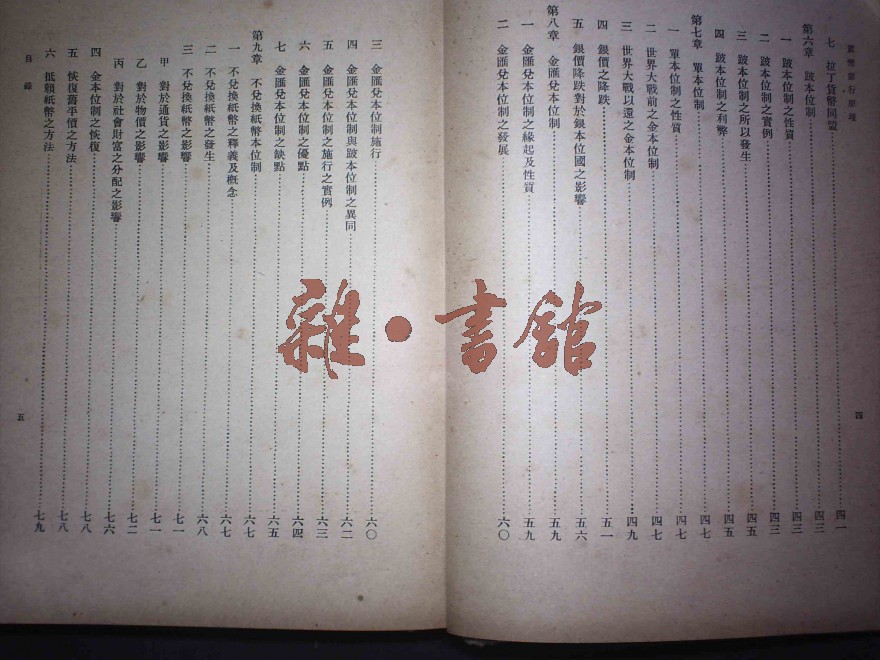 貨幣銀行原理
七　拉丁貨幣同盟⋯⋯四一
第六章　跛本位制⋯⋯四三
一　跛本位制之性質⋯⋯四三
二　跛本位制之實例⋯⋯四三
三　跛本位制之所以發生⋯⋯四五
四　跛本位制之利弊⋯⋯四五
第七章　單本位制⋯⋯四七
一　單本位制之性質⋯⋯四七
二　世界大戰前之金本位制⋯⋯四七
三　世界大戰以還之金本位制⋯⋯四九
四　銀價之降跌⋯⋯五一
五　銀價降跌對於銀本位國之影響⋯⋯五六
第八章　金匯兌本位制⋯⋯五九
一　金匯兌本位制之緣起及性質⋯⋯五九
二　金匯兌本位制之發展⋯⋯六〇
四
三　金匯兌本位制施行⋯⋯六〇
四　金匯兌本位制與跛本位制之異同⋯⋯六二
五　金匯兌本位制之施行之實例⋯⋯六三
六　金匯兌本位制之優點⋯⋯六四
七　金匯兌本位制之缺點⋯⋯六五
第九章　不兌換紙幣本位制⋯⋯六七
一　不兌換紙幣之釋義及概念⋯⋯六七
二　不兌換紙幣之發生⋯⋯六八
三　不兌換紙幣之影響⋯⋯七一
甲　對於通貨之影響⋯⋯七一
乙　對於物價之影響⋯⋯七二
丙　對於社會財富之分配之影響⋯⋯七六
四　金本位制之恢復⋯⋯七八
五　恢復舊平價之方法⋯⋯七八
六　抵賴紙幣之方法⋯⋯七九
目錄
五
雜·書館